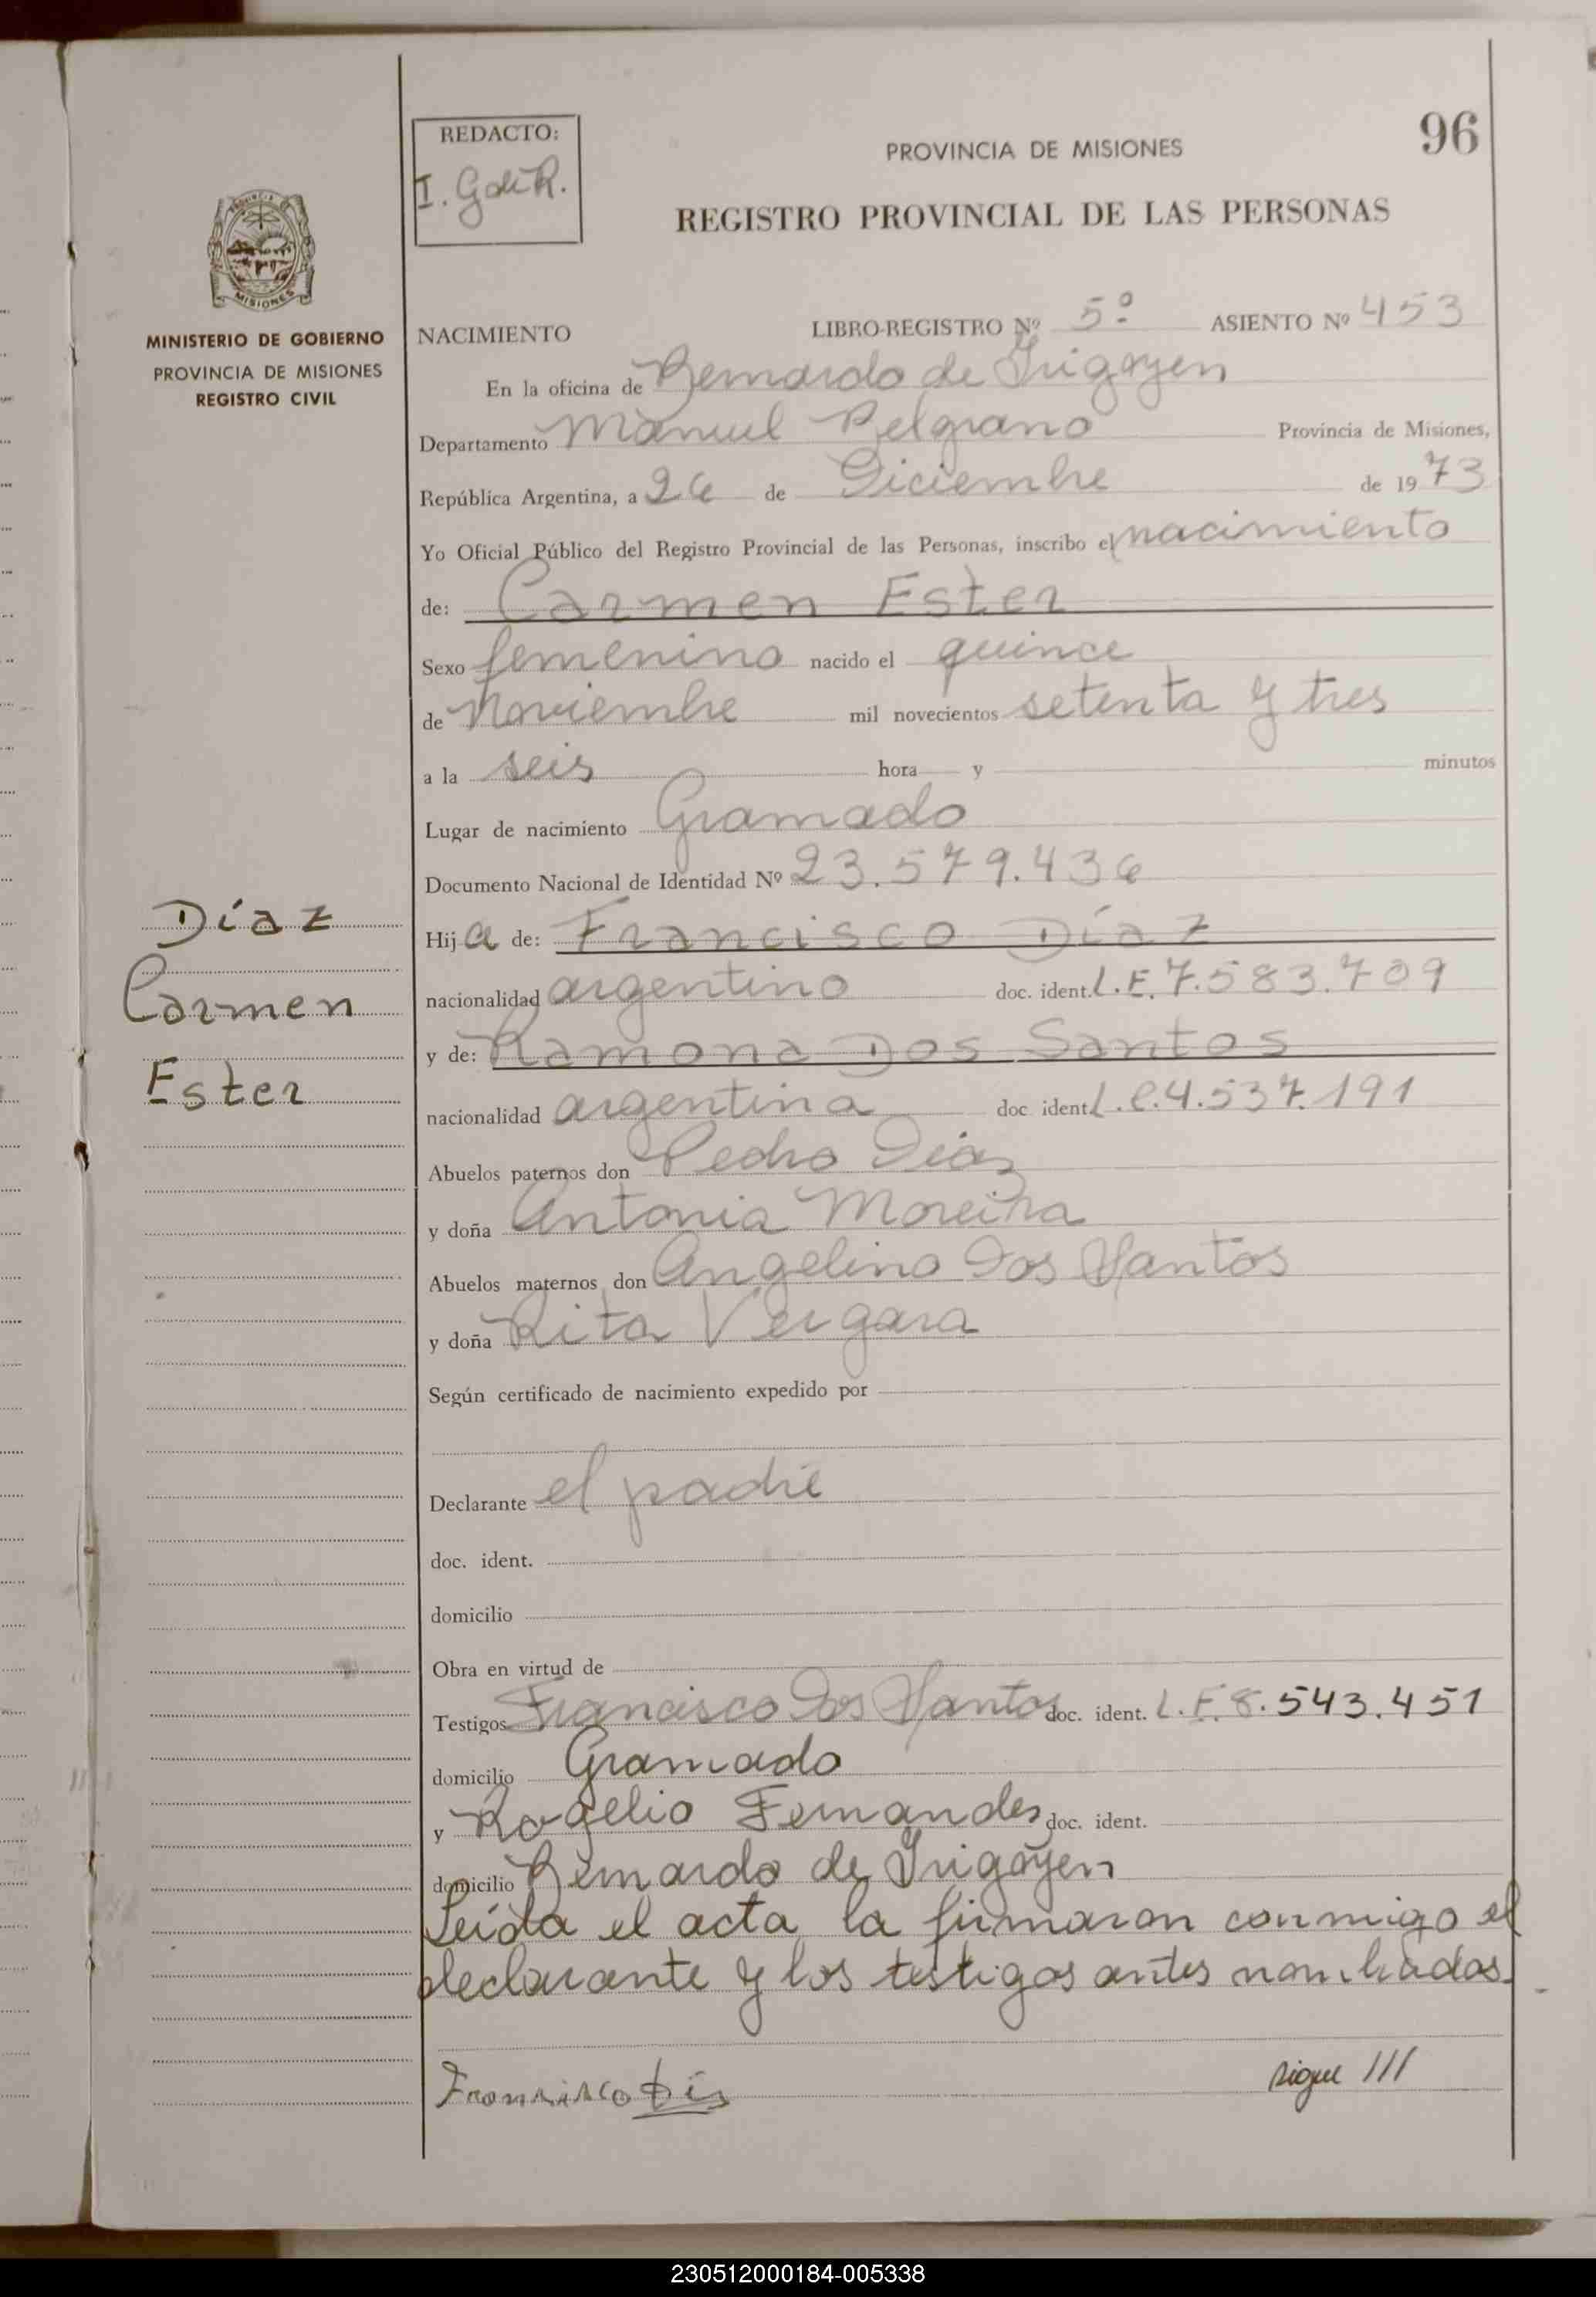 96
REDACTO:
PROVINCIA DE MISIONES
REGISTRO PROVINCIAL DE LAS PERSONAS
PROVINCIA DE
MISIONES
MINISTERIO DE GOBIERNO
PROVINCIA DE MISIONES
REGISTRO CIVIL
NACIMIENTO LIBRO-REGISTRO Nº 5º ASIENTO Nº 453
En la oficina de Bernardo de Irigoyen
Departamento Manuel Belgrano Provincia de Misiones,
República Argentina, a 26 de Diciembre de 1973
Yo Oficial Público del Registro Provincial de las Personas, inscribo el nacimiento
de: Carmen Ester
Sexo femenino nacido el quince
de Noviembre mil novecientos setenta y tres
a la seis hora y minutos
Lugar de nacimiento Gramado
Documento Nacional de Identidad Nº 23.579.436
Díaz
Carmen
Ester
Hija de: Francisco Díaz
nacionalidad argentino doc. ident. L.E. 7.583.709
y de: Ramona Dos Santos
nacionalidad argentina doc ident L.C.4.537.191
Abuelos paternos don Pedro Díaz
y doña Antonia Moreira
Abuelos maternos don Angelino Dos Santos
y doña Rita Vergara
Según certificado de nacimiento expedido por
Declarante el padre
doc. ident.
domicilio
Obra en virtud de
Testigos Francisco Dos Santos doc. ident. L.E. 8.543.451
domicilio Gramado
y Rogelio Fernandes doc. ident.
domicilio Bernardo de Irigoyen
Leída el acta la firmaron conmigo el
declarante y los testigos antes nombrados.
sigue ///
Francisco
230512000184-005338